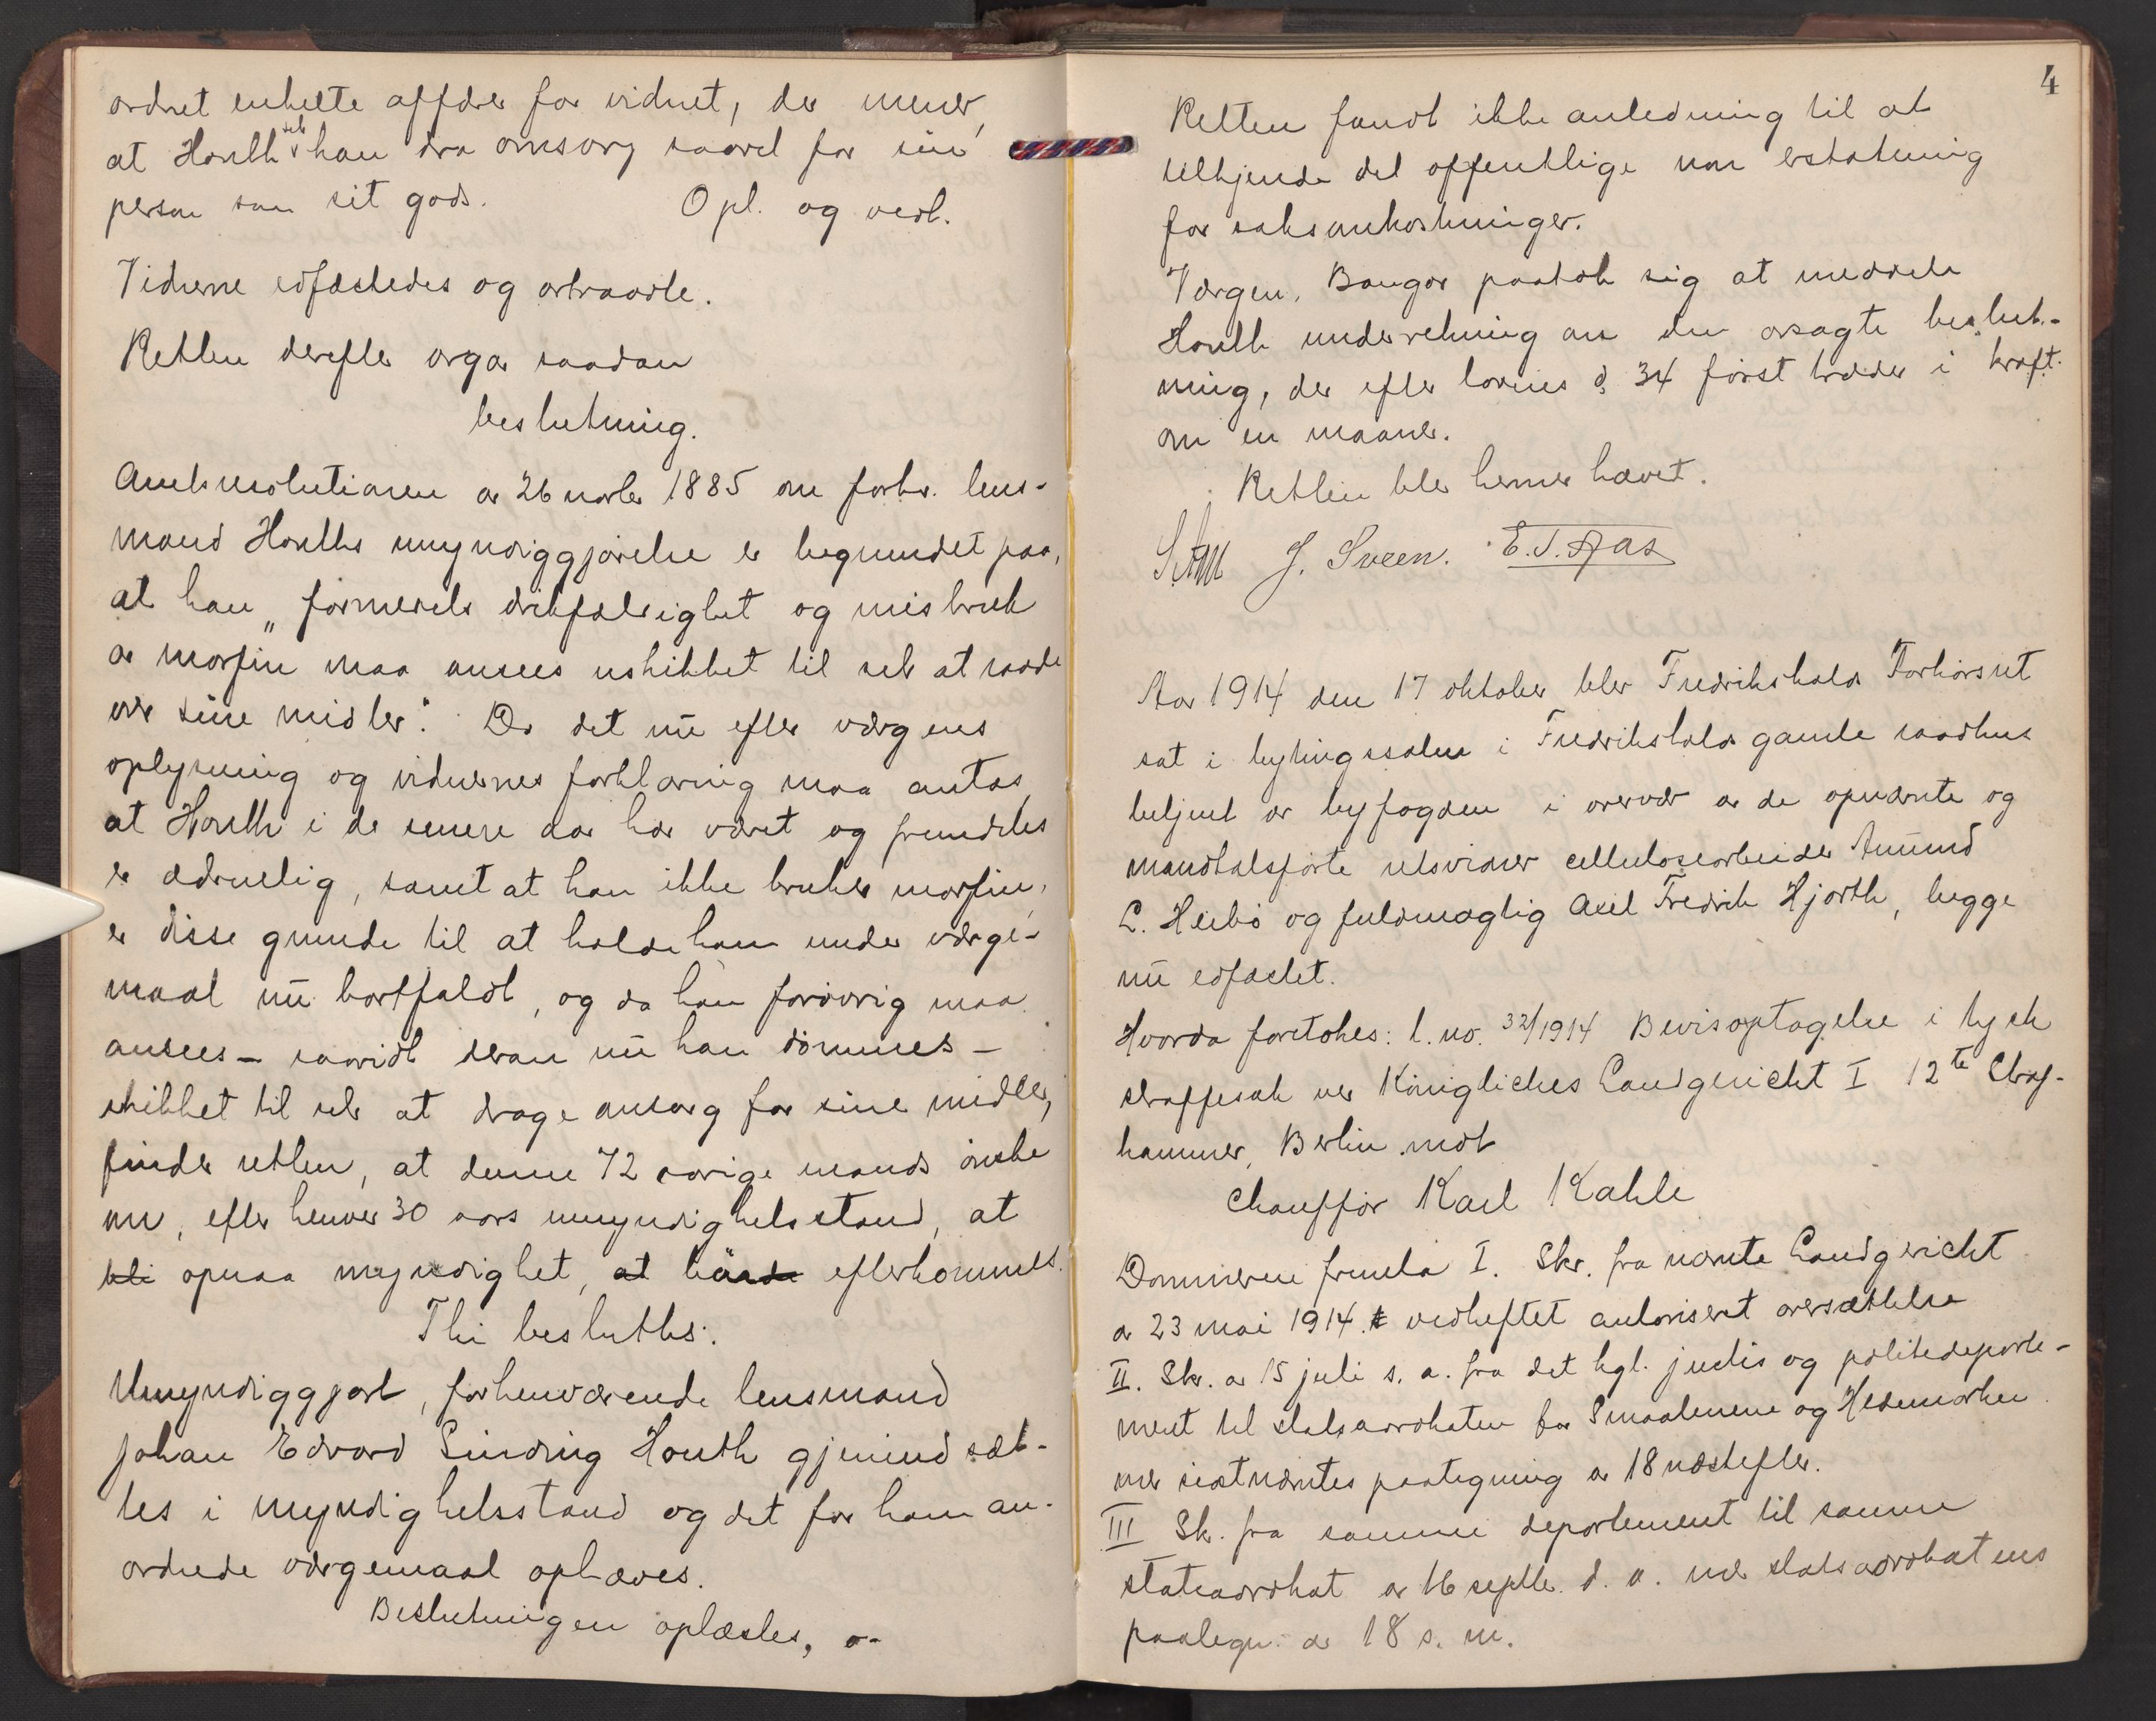 ordnet enkelte affærer for vidnet, der mener,
at Houth selv kan dra omsorg saavel for sin
person som sit gods. Opl. og vedt.
Vidnerne edfæstedes og avtraadte.
Retten derefter avgav saadan
beslutning.
Amtsresolutionen av 26 novbr 1885 om forhv. lens-
mand Houths umyndiggjørelse er begrundet paa,
at han „formedels drikfældighet og misbruk
av morfin maa ansees uskikket til selv at raade
over sine midler". Da det nu efter værgens
oplysning og vidnernes forklaring maa antas,
at Houth i de senere aar har været og fremdeles
er ædruelig, samt at han ikke bruker morfin,
er disse grunde til at holde ham under værge-
maal nu bortfaldt, og da han forøvrig maa
ansees - saavidt derom nu kan dømmes -
skikket til selv at drage omsorg for sine midler,
finder retten, at denne 72 aarige mands ønske
om, efter henved 30 aars umyndighetsstand, at
bli opnaa myndighet, at burde efterkommes.
Thi besluttes:
Umyndiggjort, forhenværende lensmand
Johan Edvard Sinding Houth gjenindsæt-
tes i myndighetsstand og det for ham an-
ordnede værgemaal ophæves.
Beslutningen oplæstes, o-
4
Retten fandt ikke anledning til at
tilkjende det offentlige noen erstatning
for saksomkostninger.
Værgen, Bangor paatok sig at meddele
Houth underretning om den avsagte beslut-
ning, der efter lovens § 34 først træder i kraft
om en maaned.
Retten blev hermed hævet.
J. Sveen. E. J. Aas
Aar 1914 den 17 oktober blev Fredrikshalds Forhørsret
sat i bytingssalen i Fredrikshalds gamle raadhus
betjent av byfogden i overvær av de opnævnte og
mandtalsførte retsvidner cellulosearbeider Amund
L. Heibø og fuldmægtig Axel Fredrik Hjorth, begge
nu edfæstet.
Hvorda foretokes: l. no. 32/1914 Bevisoptagelse i tysk
straffesak ved Königliches Landgericht I 12te Straf-
kammer, Berlin mot
Chauffør Karl Kahle
Dommeren fremla I. Skr. fra nævnte Landgericht
av 23 mai 1914 vedheftet autoriseret oversættelse
II. Skr. av 15 juli s. a. fra det kgl. justis og politidepparte-
ment til statsadvokaten for Smaalenene og Hedemarken
med sistnævntes paategning av 18 næstefter.
III Sk. fra samme departement til samme
statsadvokat av 16 septbr. d. a. med statsadvokatens
paategn. av 18 s. m.